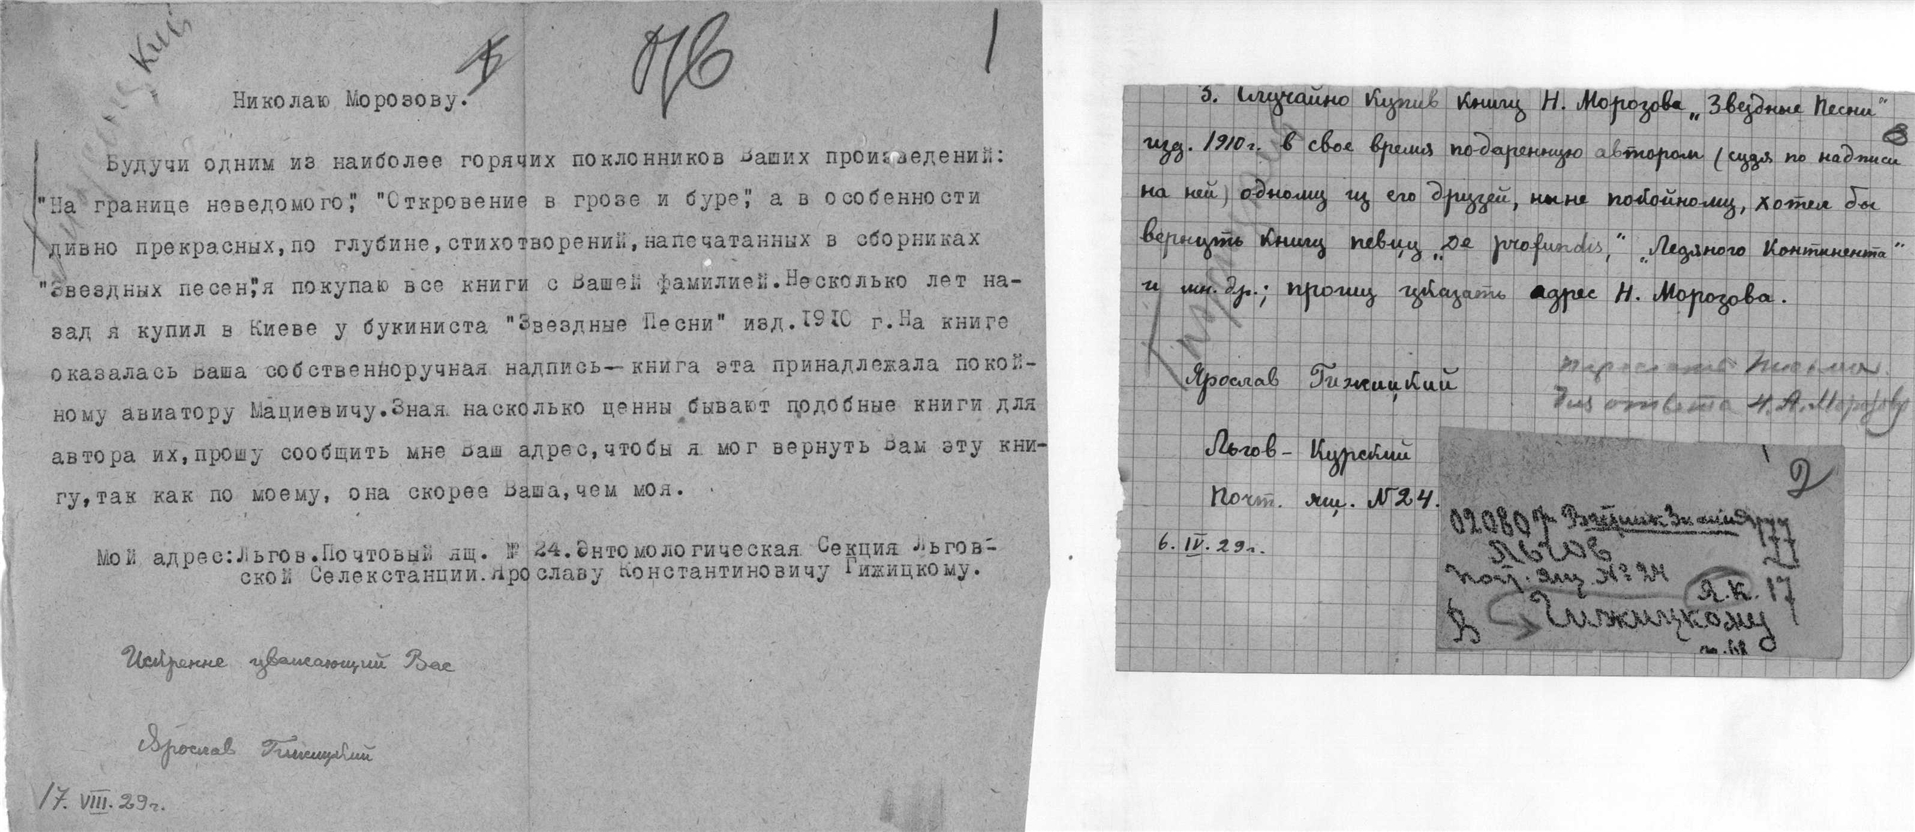 Николаю Морозову.
1
Будучи одним из наиболее горячих поклонников Ваших произведений:
"На границе неведомого", "Откровение в грозе и буре", а в особенности
дивно прекрасных,по глубине,стихотворений,напечатанных в сборниках
"Звездных песен",я покупаю все книги с Вашей фамилией.Несколько лет на-
зад я купил в Киеве у букиниста "Звездные Песни" изд.1910 г.На книге
оказалась Ваша собственноручная надпись—книга эта принадлежала покой-
ному авиатору Мациевичу.Зная насколько ценны бывают подобные книги для
автора их,прошу сообщить мне Ваш адрес,чтобы я мог вернуть Вам эту кни-
гу,так как по моему, она скорее Ваша,чем моя.
Мой адрес:Льгов.Почтовый ящ. № 24.Энтомологическая Секция Льгов-
ской Селекстанции.Ярославу Константиновичу Гижицкому.
Искренне уважающий Вас
Ярослав Гижицкий
17. VIII. 29г.
3. Случайно купив книгу Н. Морозова „Звездные Песни"
изд. 1910г. в свое время подаренную автором (судя по надписи
на ней) одному из его друзей, ныне покойному, хотел бы
вернуть книгу певцу „De profundis", „Ледяного Континента"
и мн. др.; прошу указать адрес Н. Морозова.
Ярослав Гижицкий
переслать письмо
для ответа Н.А.Морозову
Льгов - Курский
Почт. ящ. N 24.
6. IV. 29г.
2
020807 Вестник Знания
Льгов
почт. ящ. № 24
Я.К. 17
Гижицкому